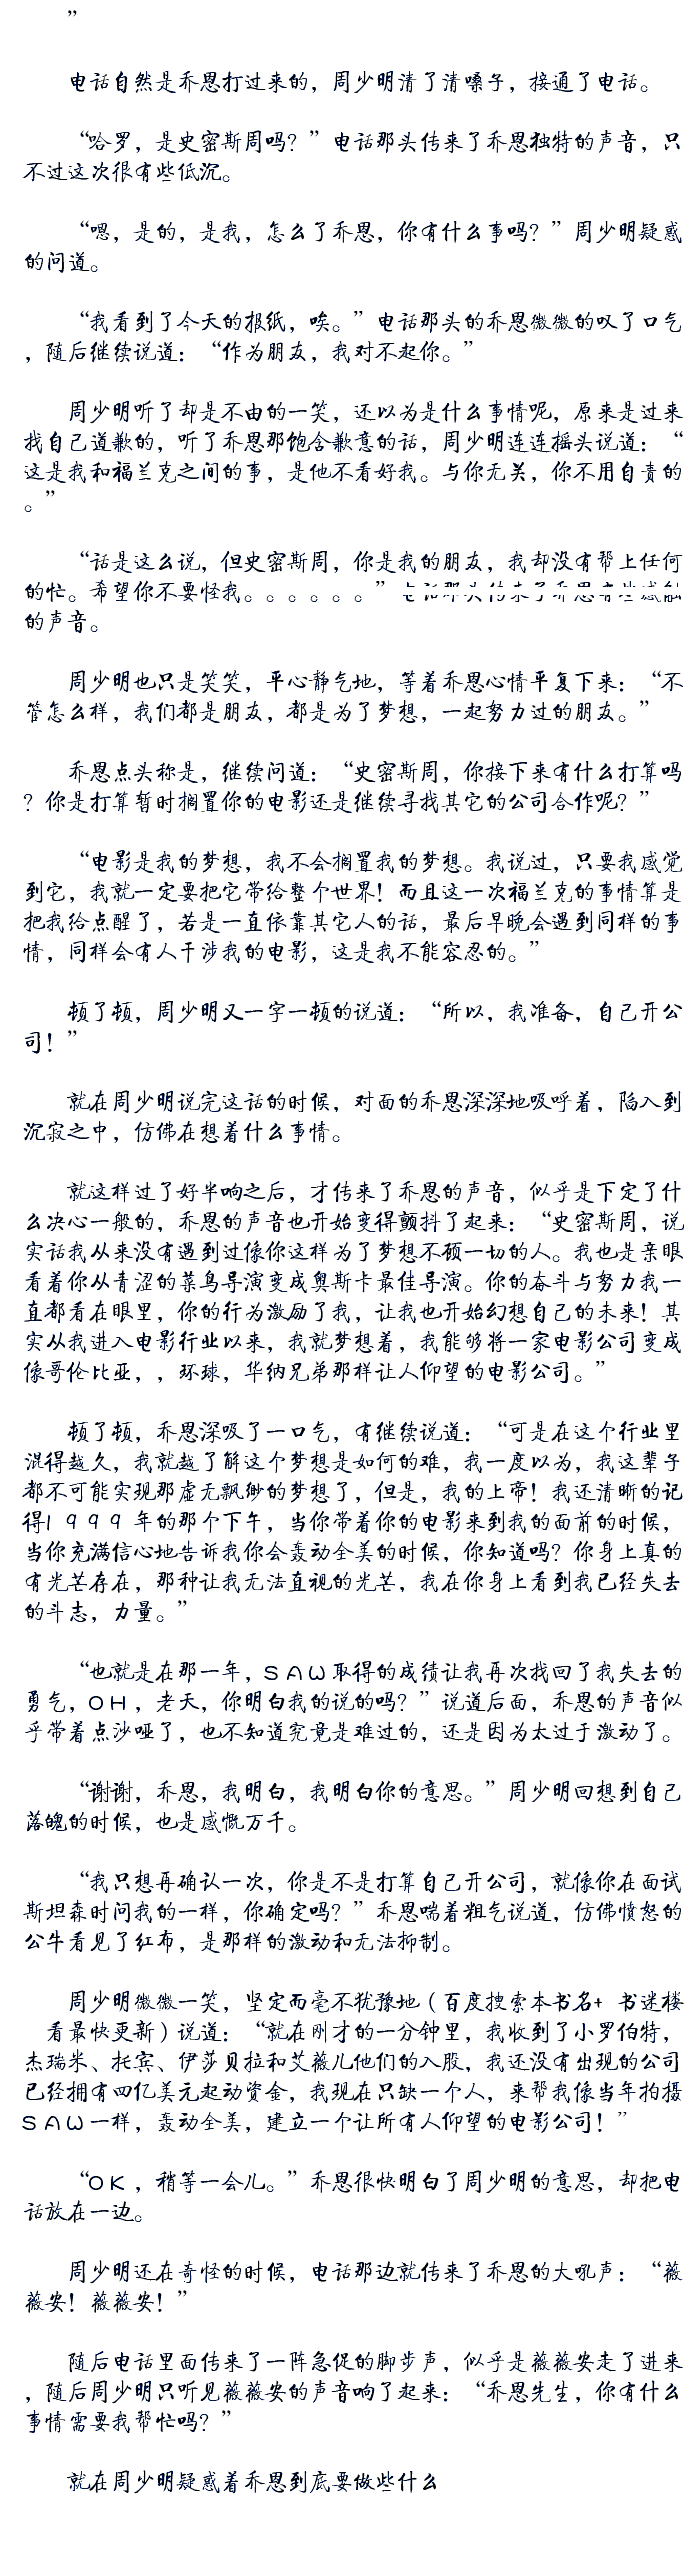 ”
电话自然是乔恩打过来的，周少明清了清嗓子，接通了电话。
“哈罗，是史密斯周吗？”电话那头传来了乔恩独特的声音，只
不过这次很有些低沉。
“嗯，是的，是我，怎么了乔恩，你有什么事吗？”周少明疑惑
的问道。
“我看到了今天的报纸，唉。”电话那头的乔恩微微的叹了口气
，随后继续说道：“作为朋友，我对不起你。”
周少明听了却是不由的一笑，还以为是什么事情呢，原来是过来
找自己道歉的，听了乔恩那饱含歉意的话，周少明连连摇头说道：“
这是我和福兰克之间的事，是他不看好我。与你无关，你不用自责的
。”
“话是这么说，但史密斯周，你是我的朋友，我却没有帮上任何
的忙。希望你不要怪我。。。。。。”电话那头传来了乔恩有些感触
的声音。
周少明也只是笑笑，平心静气地，等着乔恩心情平复下来：“不
管怎么样，我们都是朋友，都是为了梦想，一起努力过的朋友。”
乔恩点头称是，继续问道：“史密斯周，你接下来有什么打算吗
？你是打算暂时搁置你的电影还是继续寻找其它的公司合作呢？”
“电影是我的梦想，我不会搁置我的梦想。我说过，只要我感觉
到它，我就一定要把它带给整个世界！而且这一次福兰克的事情算是
把我给点醒了，若是一直依靠其它人的话，最后早晚会遇到同样的事
情，同样会有人干涉我的电影，这是我不能容忍的。”
顿了顿，周少明又一字一顿的说道：“所以，我准备，自己开公
司！”
就在周少明说完这话的时候，对面的乔恩深深地吸呼着，陷入到
沉寂之中，仿佛在想着什么事情。
就这样过了好半响之后，才传来了乔恩的声音，似乎是下定了什
么决心一般的，乔恩的声音也开始变得颤抖了起来：“史密斯周，说
实话我从来没有遇到过像你这样为了梦想不顾一切的人。我也是亲眼
看着你从青涩的菜鸟导演变成奥斯卡最佳导演。你的奋斗与努力我一
直都看在眼里，你的行为激励了我，让我也开始幻想自己的未来！其
实从我进入电影行业以来，我就梦想着，我能够将一家电影公司变成
像哥伦比亚，，环球，华纳兄弟那样让人仰望的电影公司。”
顿了顿，乔恩深吸了一口气，有继续说道：“可是在这个行业里
混得越久，我就越了解这个梦想是如何的难，我一度以为，我这辈子
都不可能实现那虚无飘缈的梦想了，但是，我的上帝！我还清晰的记
得1999年的那个下午，当你带着你的电影来到我的面前的时候，
当你充满信心地告诉我你会轰动全美的时候，你知道吗？你身上真的
有光芒存在，那种让我无法直视的光芒，我在你身上看到我已经失去
的斗志，力量。”
“也就是在那一年，SAW取得的成绩让我再次找回了我失去的
勇气，OH，老天，你明白我的说的吗？”说道后面，乔恩的声音似
乎带着点沙哑了，也不知道究竟是难过的，还是因为太过于激动了。
“谢谢，乔恩，我明白，我明白你的意思。”周少明回想到自己
落魄的时候，也是感慨万千。
“我只想再确认一次，你是不是打算自己开公司，就像你在面试
斯坦森时问我的一样，你确定吗？”乔恩喘着粗气说道，仿佛愤怒的
公牛看见了红布，是那样的激动和无法抑制。
周少明微微一笑，坚定而毫不犹豫地（百度搜索本书名+ 书迷楼
看最快更新）说道：“就在刚才的一分钟里，我收到了小罗伯特，
杰瑞米、托宾、伊莎贝拉和艾薇儿他们的入股，我还没有出现的公司
已经拥有四亿美元起动资金，我现在只缺一个人，来帮我像当年拍摄
SAW一样，轰动全美，建立一个让所有人仰望的电影公司！”
“OK，稍等一会儿。”乔恩很快明白了周少明的意思，却把电
话放在一边。
周少明还在奇怪的时候，电话那边就传来了乔恩的大吼声：“薇
薇安！薇薇安！”
随后电话里面传来了一阵急促的脚步声，似乎是薇薇安走了进来
，随后周少明只听见薇薇安的声音响了起来：“乔恩先生，你有什么
事情需要我帮忙吗？”
就在周少明疑惑着乔恩到底要做些什么